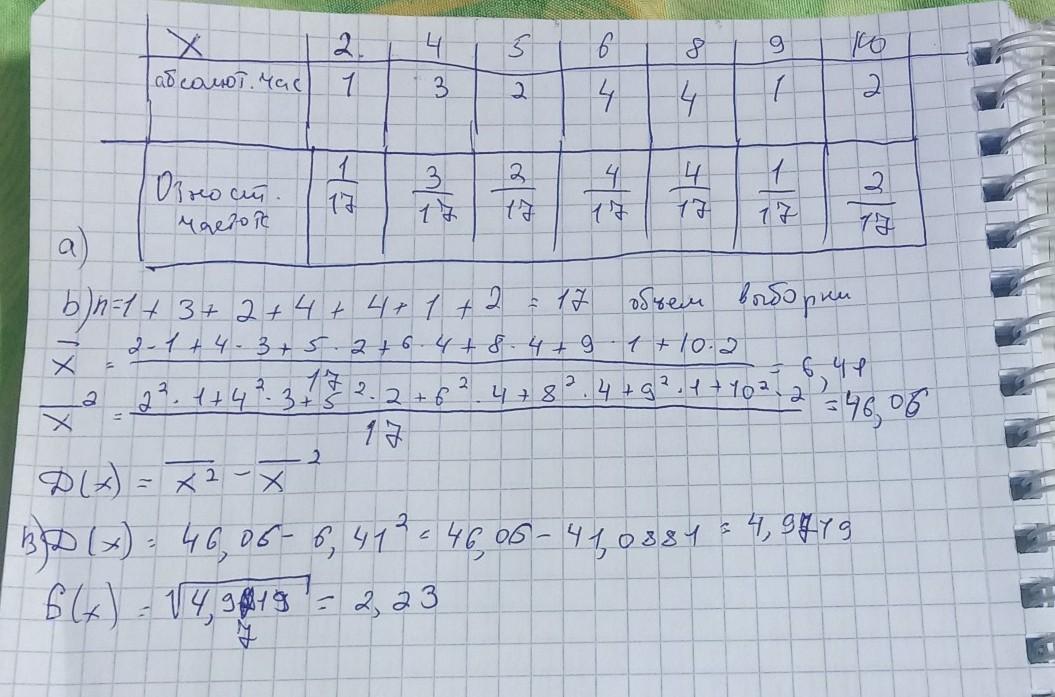 X 2 4 5 6 8 9 10
абсолют. час 1 3 2 4 4 1 2
Относит. частота 1/17 3/17 2/17 4/17 4/17 1/17 2/17
а)
b) n=1+3+2+4+4+1+2=17 объем выборки
x̄ = (2·1+4·3+5·2+6·4+8·4+9·1+10·2)/17 = 6,41
x̄² = (2²·1+4²·3+5²·2+6²·4+8²·4+9²·1+10²·2)/17 = 46,06
D(x) = x̄² − x̄²
в) D(x) = 46,06 − 6,41² = 46,06 − 41,0881 = 4,9719
б(x) = √4,9719 = 2,23